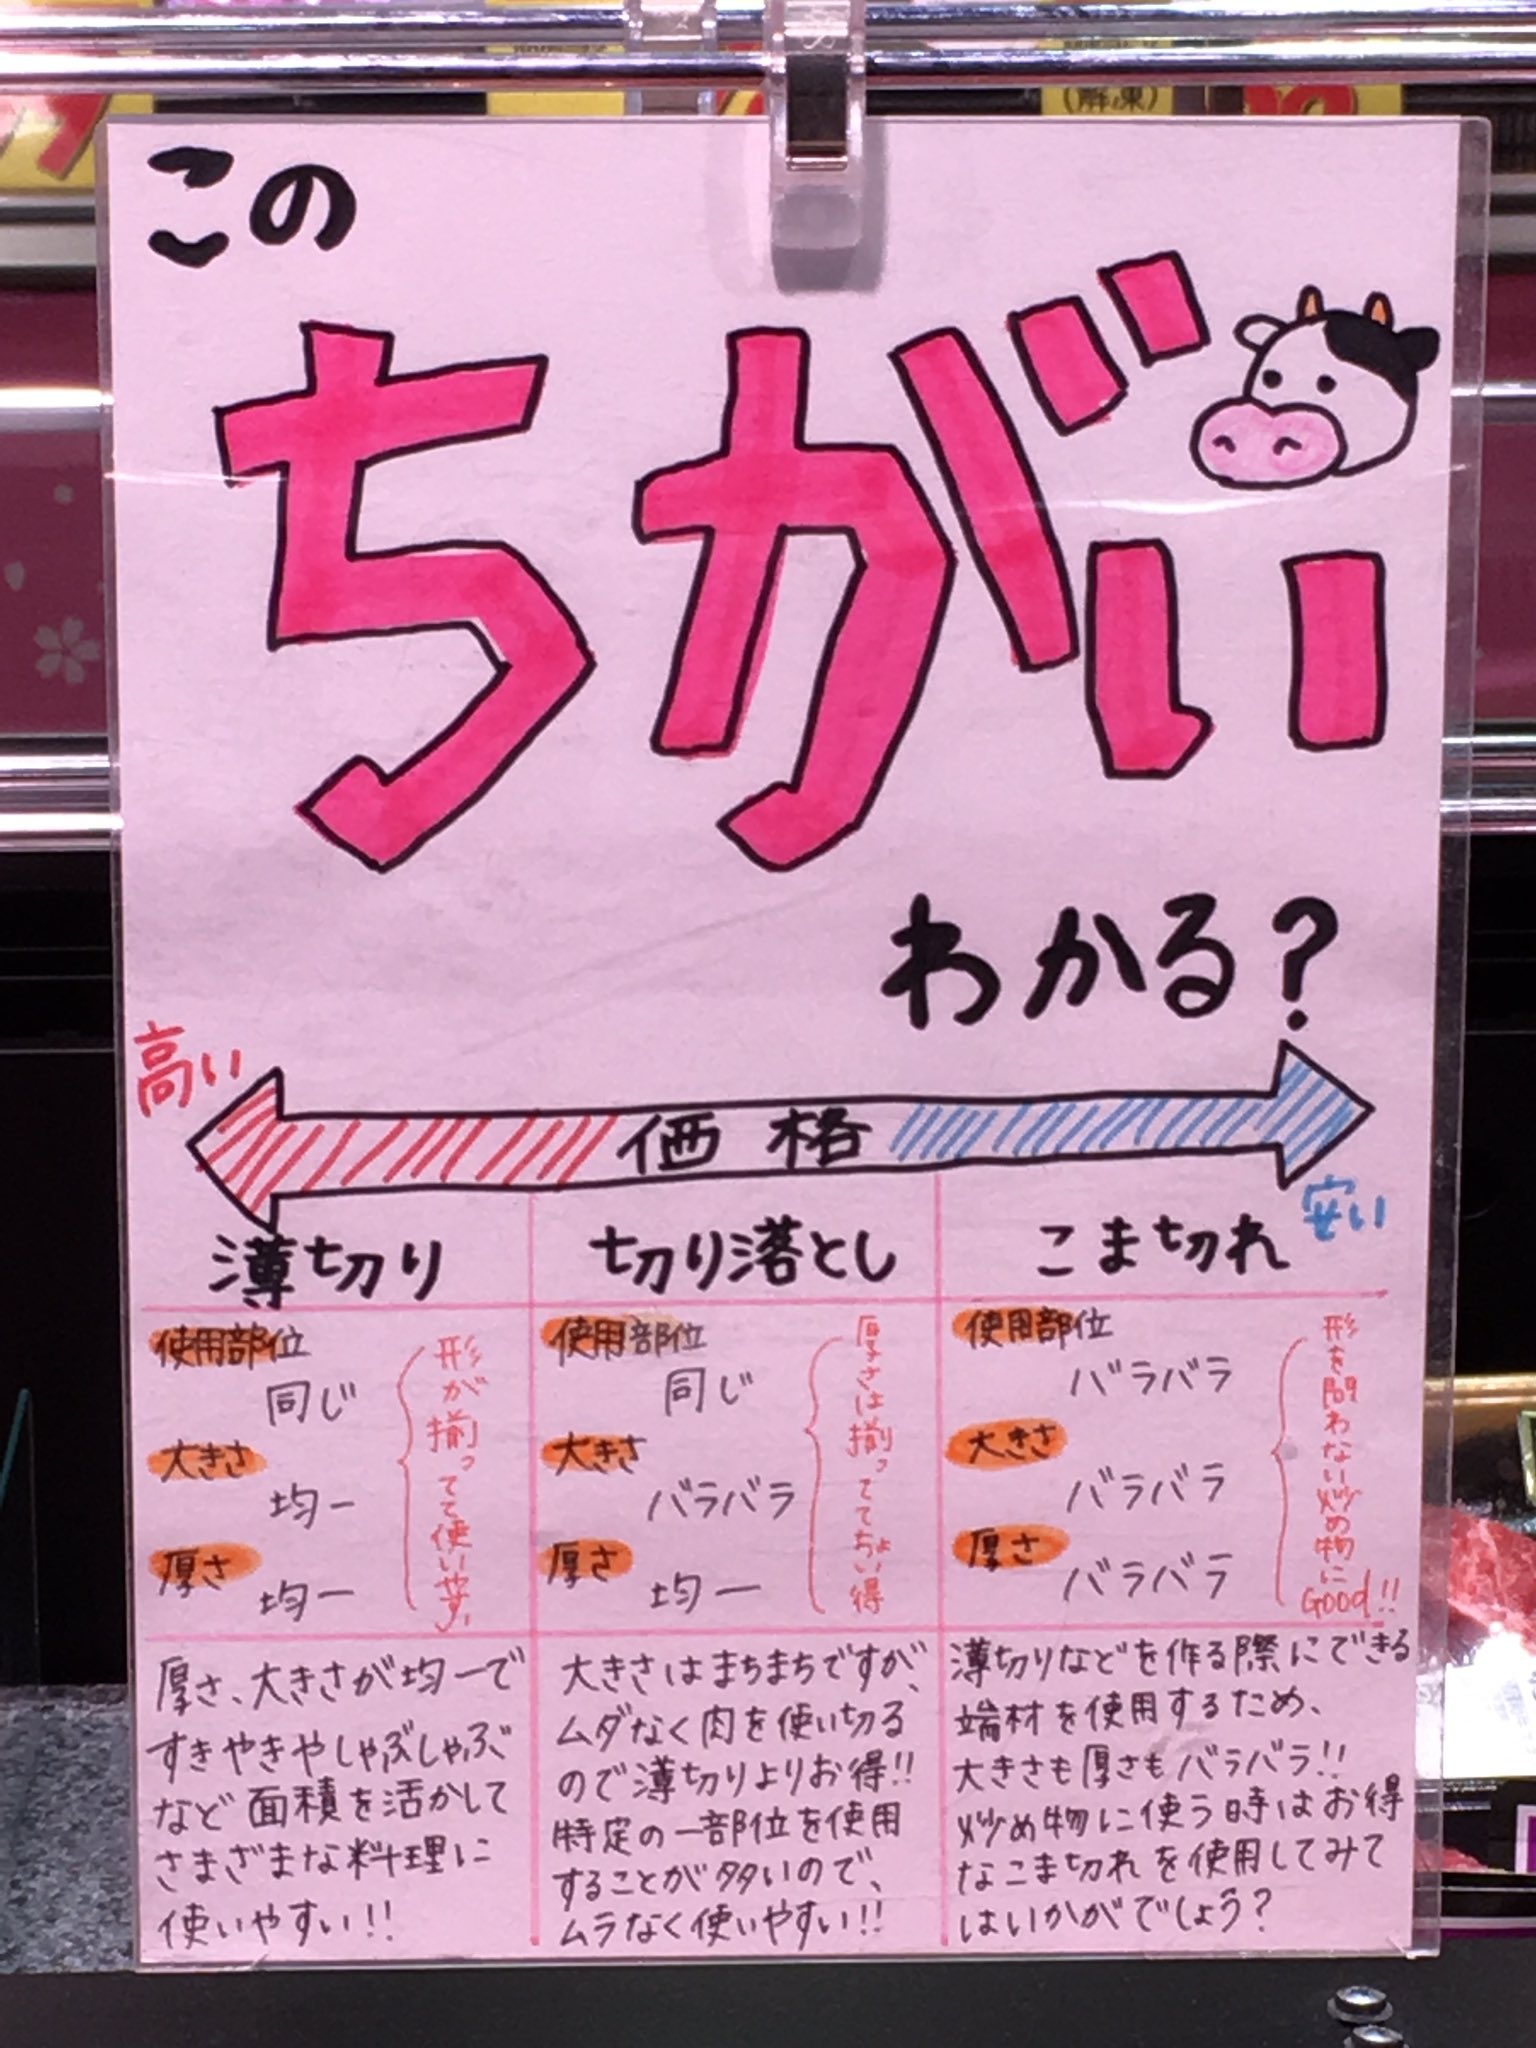 (解凍)
この
ちがい
わかる?
高い
価格
安い
薄切り
使用部位
同じ
大きさ
均一
厚さ
均一
形が揃ってて使い易い
厚さ、大きさが均一で
すきやきやしゃぶしゃぶ
など面積を活かして
さまざまな料理に
使いやすい!!
切り落とし
使用部位
同じ
大きさ
バラバラ
厚さ
均一
厚さは揃っててちょい得
大きさはまちまちですが、
ムダなく肉を使い切る
ので薄切りよりお得!!
特定の一部位を使用
することが多いので、
ムラなく使いやすい!!
こま切れ
使用部位
バラバラ
大きさ
バラバラ
厚さ
バラバラ
形を問わない炒め物に
Good!!
薄切りなどを作る際にできる
端材を使用するため、
大きさも厚さもバラバラ!!
炒め物に使う時はお得
なこま切れを使用してみて
はいかがでしょう?